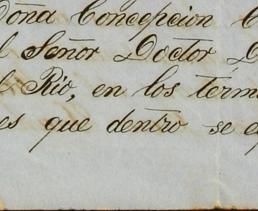 Doña Concepcion
Señor Doctor
Rio, en los
que dentro se